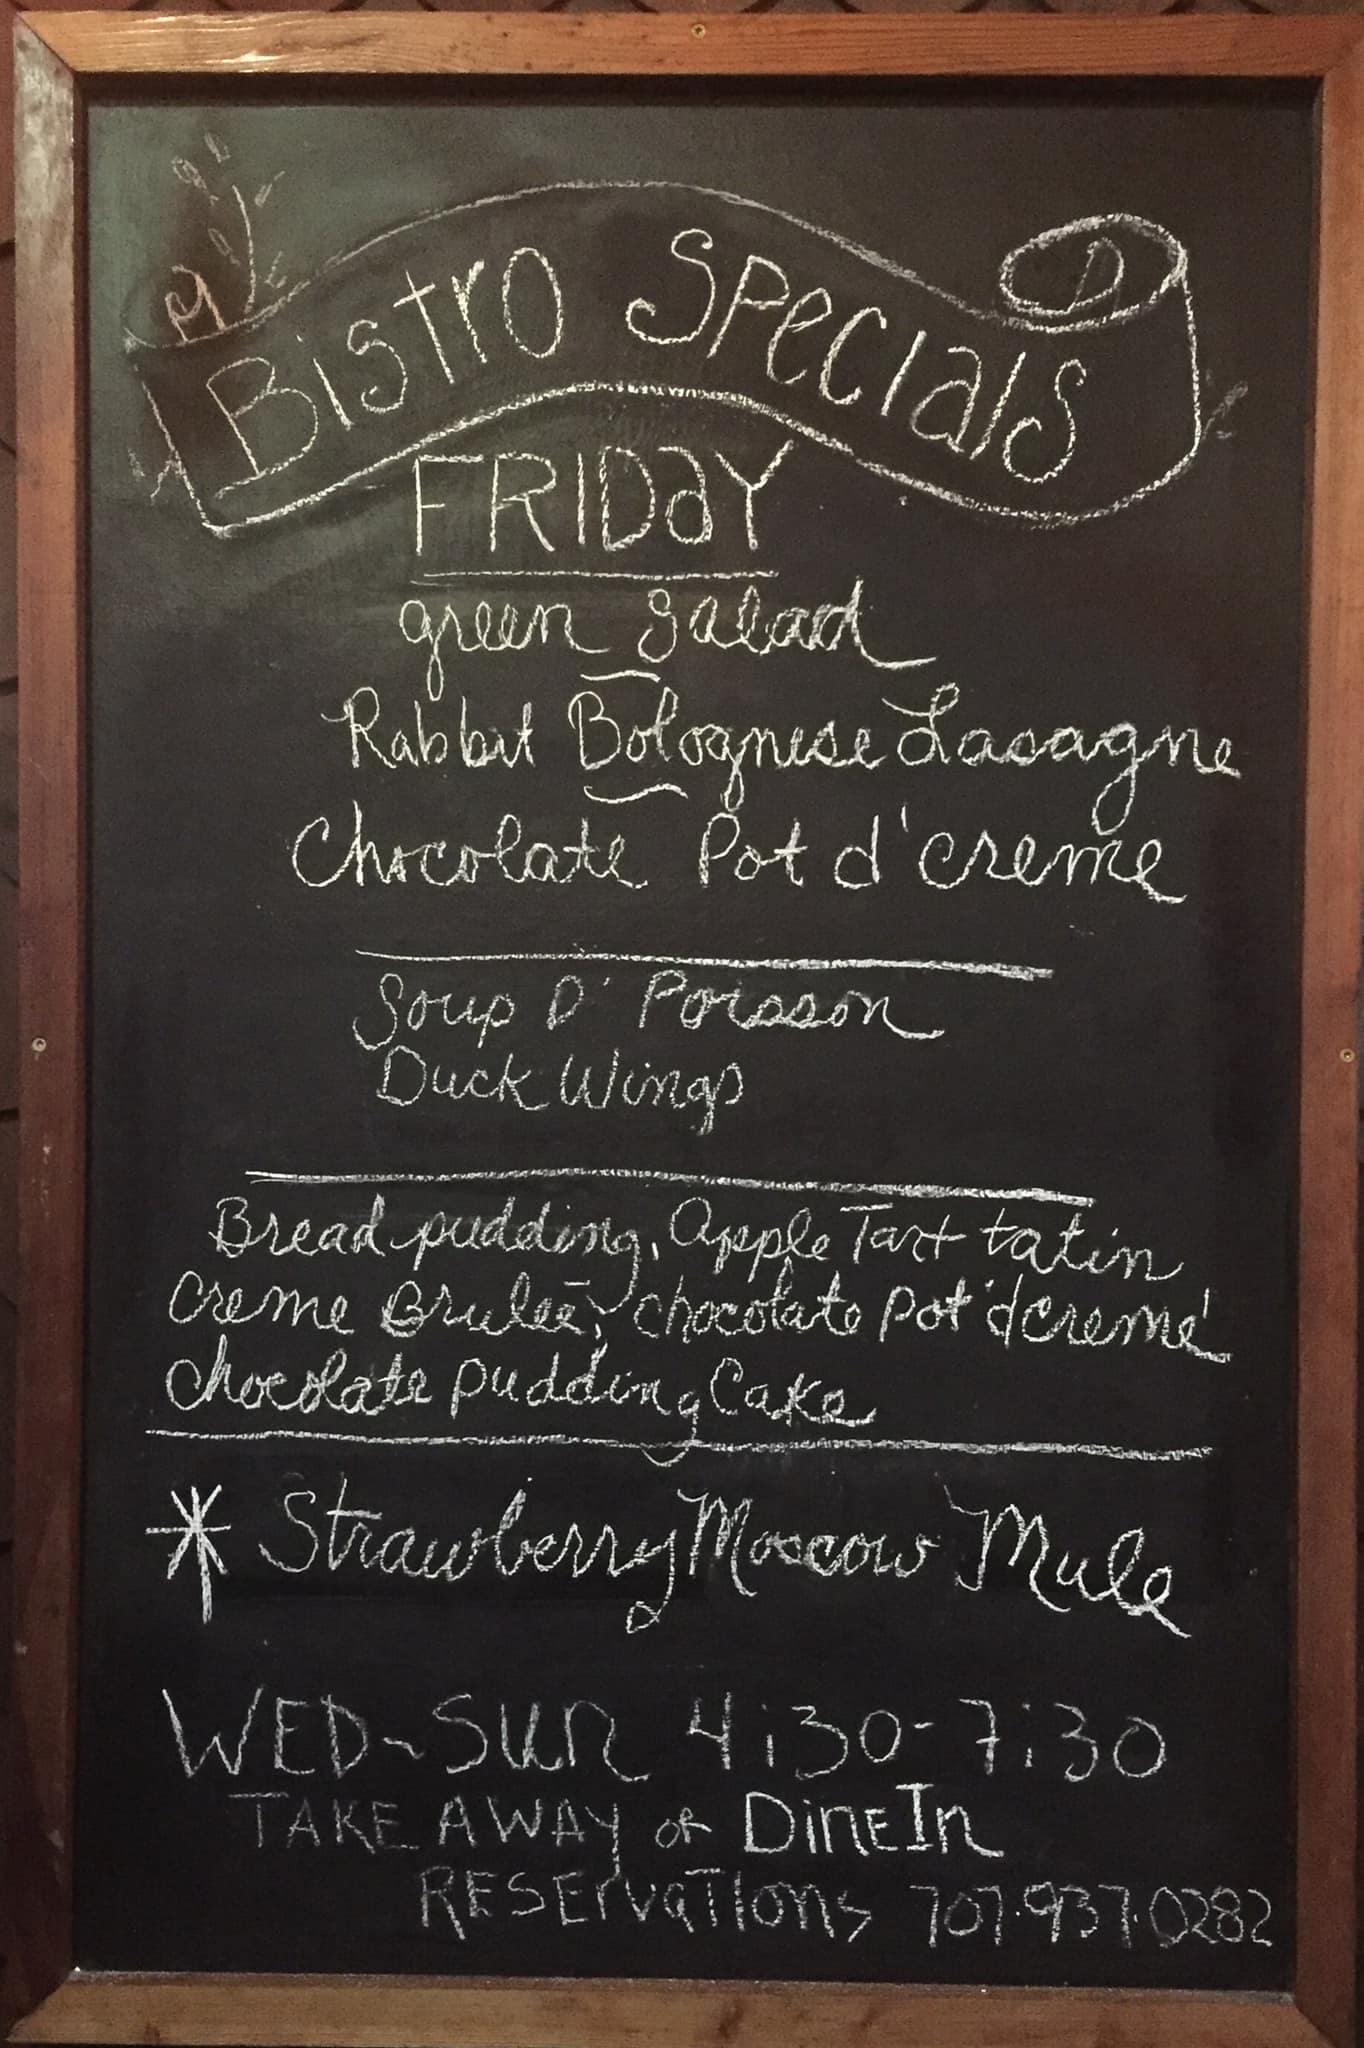 Bistro Specials
FRIDaY
green salad
Rabbit Bolognese Lasagne
Chocolate Pot d'creme
Soup D' Poisson
Duck Wings
Bread pudding, Apple Tart tatin
Creme Brulee, chocolate Pot 'd creme'
Chocolate Pudding Cake
* Strawberry Moscow Mule
WED~SUN 4:30-7:30
TAKE AWAY or DineIn
RESErvaTIons 707.937.0282